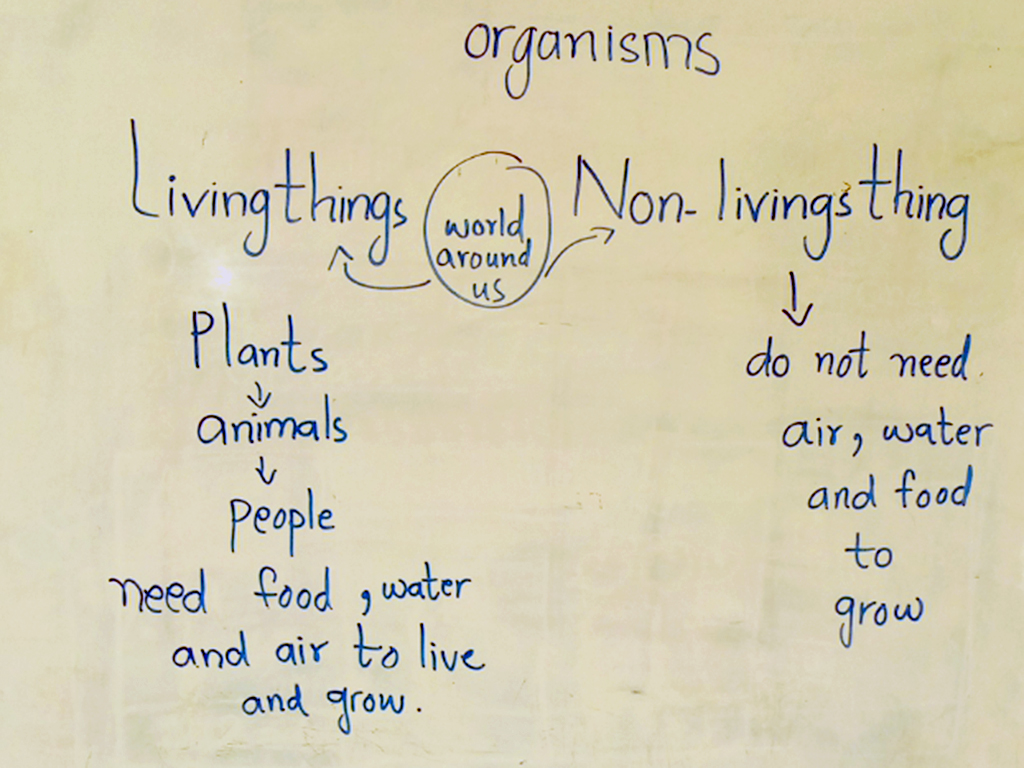 organisms
Livingthings
world
around
us
Non-livings thing
Plants
animals
people
need food, water
and air to live
and grow.
do not need.
air, water
and food
to
grow